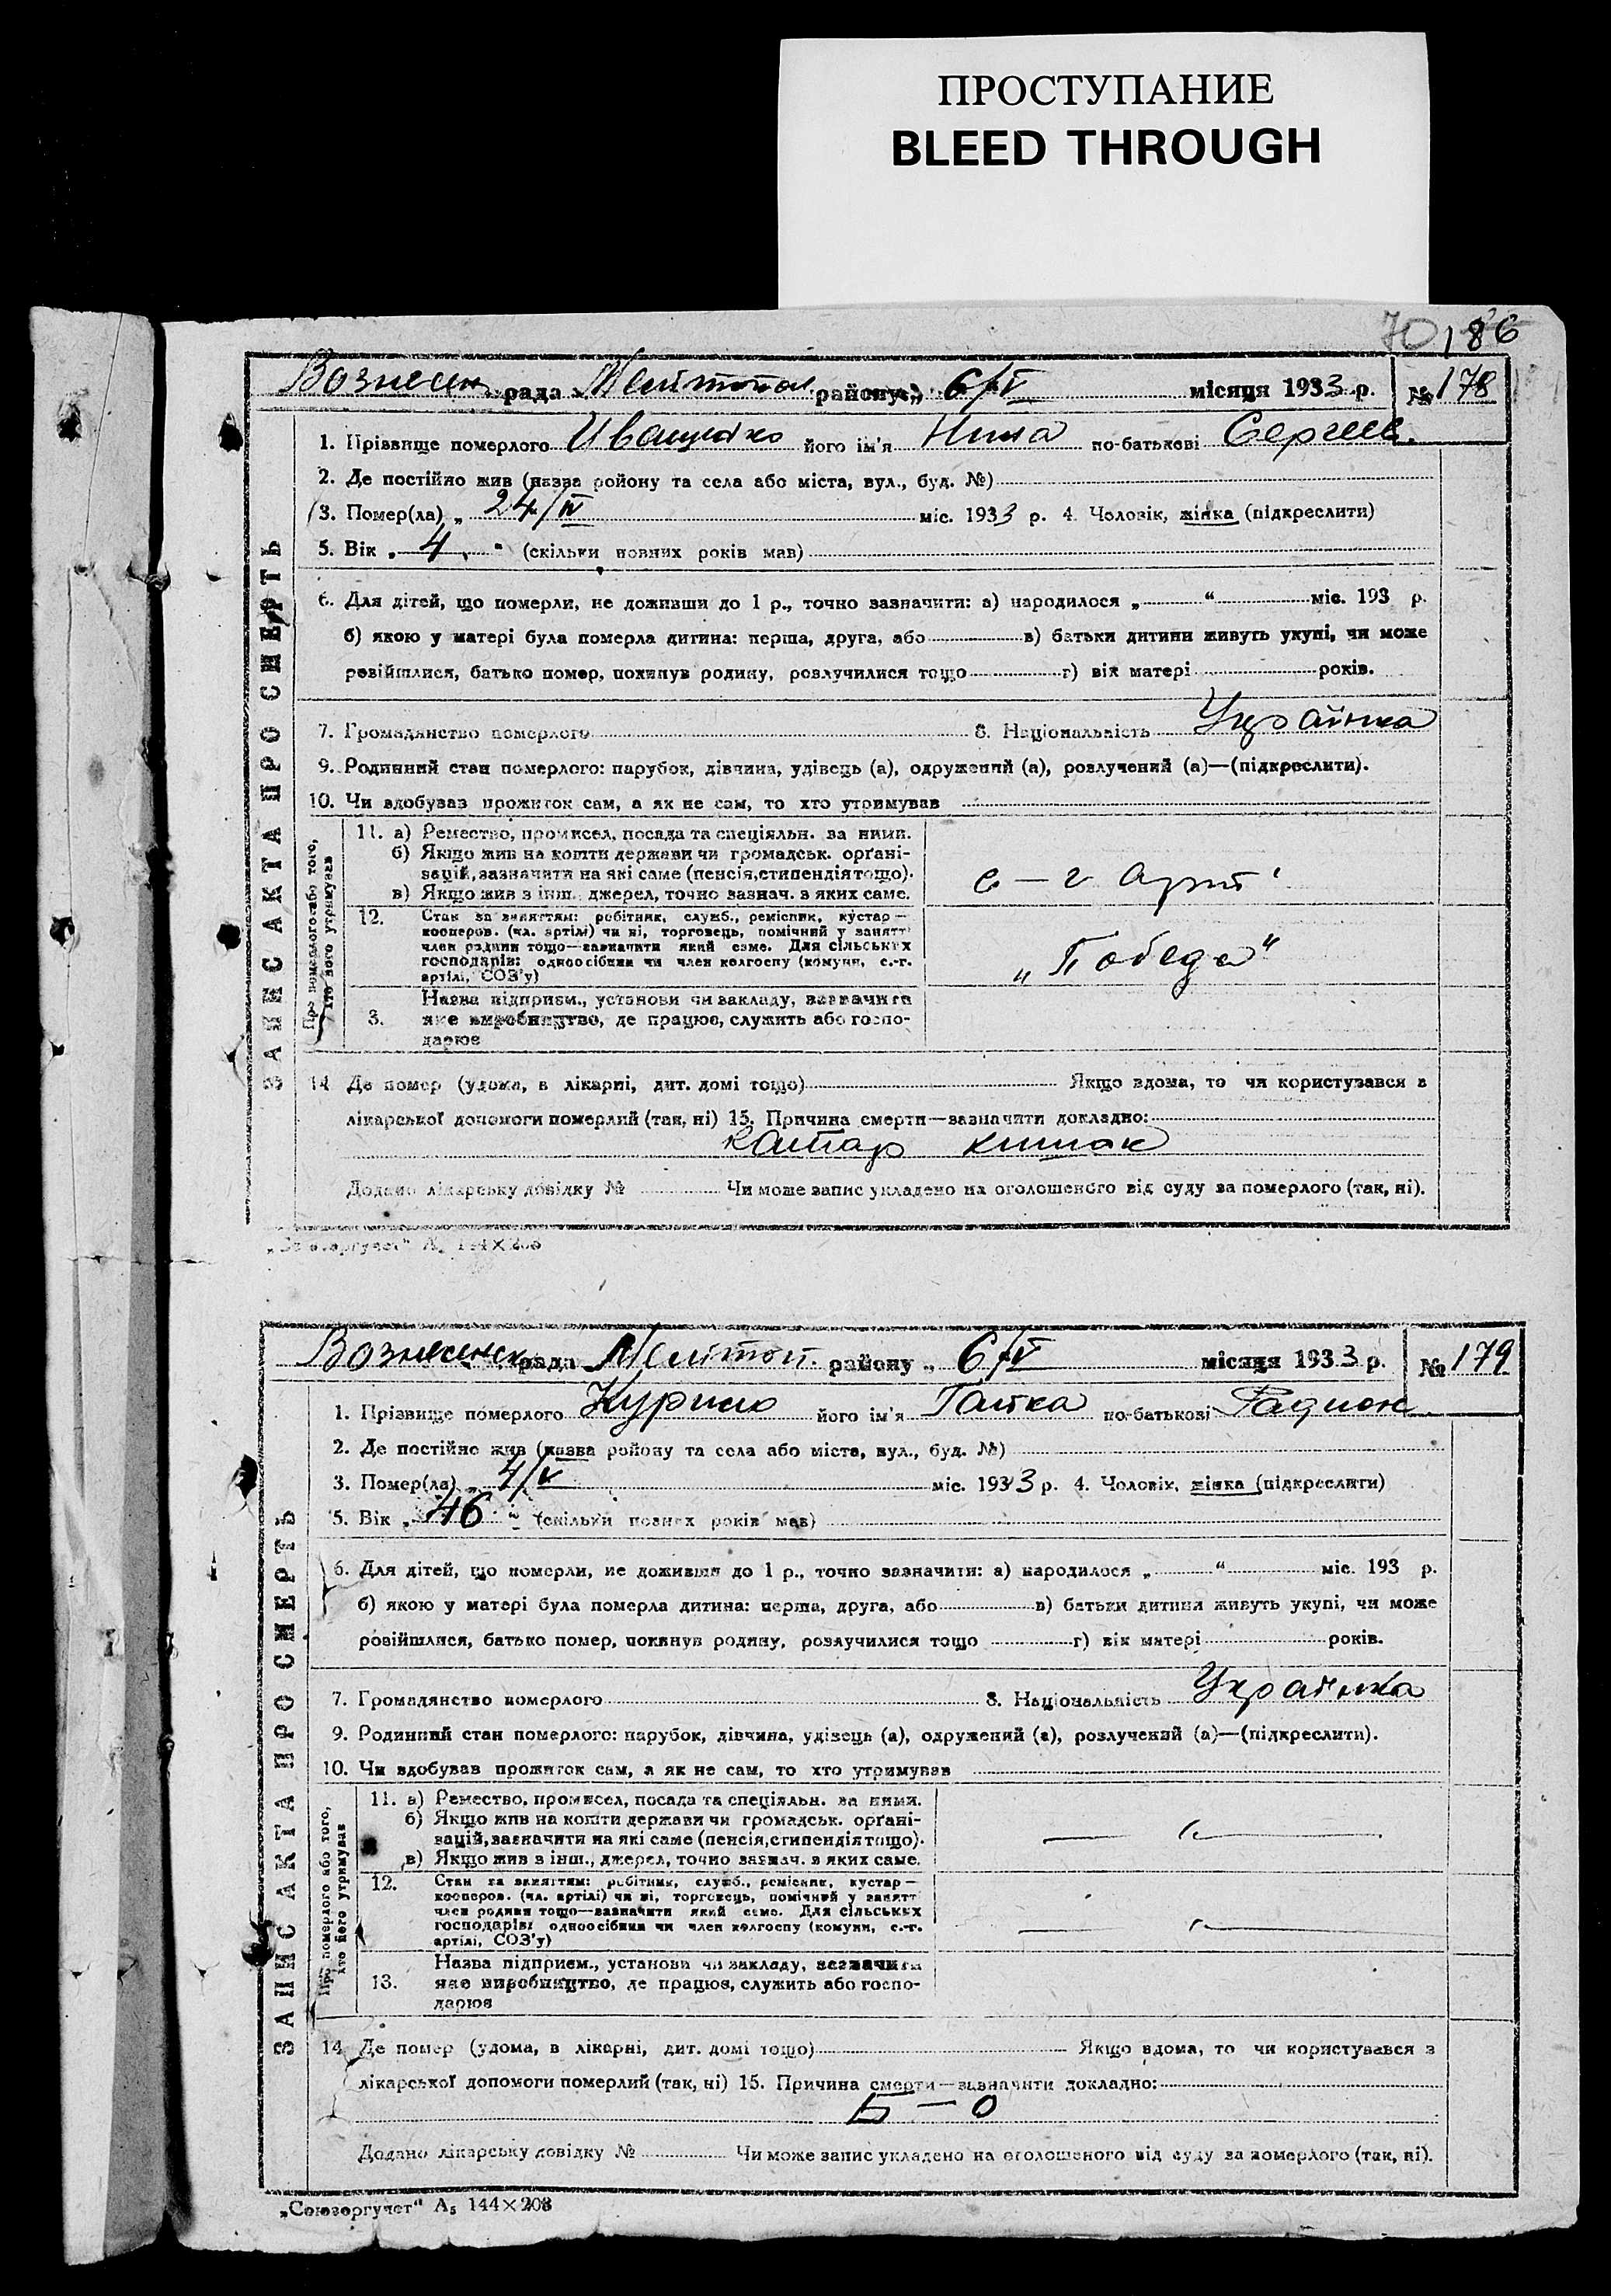 ПРОСТУПАНИЕ
BLEED THROUGH
70 186
Вознесен рада Мелитопол району „ 6/V місяця 1933 р. № 178
ЗАПИС АКТА ПРО СМЕРТЬ
1. Прізвище померлого Иващенко його ім'я Нина по-батькові Сергеев.
2. Де постійно жив (назва району та села або міста, вул., буд. №)
3. Помер(ла) „ 24/IV міс. 1933 р. 4. Чоловік, жінка (підкреслити)
5. Вік „ 4 " (скільки повних років мав)
6. Для дітей, що померли, не доживши до 1 р., точно зазначити: а) народилося „ “ міс. 193 р.
б) якою у матері була померла дитина: перша, друга, або в) батьки дитини живуть укупі, чи може
розійшлися, батько помер, покинув родину, розлучилися тощо г) вік матері років.
7. Громадянство померлого 8. Національність Українка
9. Родинний стан померлого: парубок, дівчина, удівець (а), одружений (а), розлучений (а)—(підкреслити).
10. Чи здобував прожиток сам, а як не сам, то хто утримував
Про померлого або того, хто його утримував
11. а) Ремество, промисел, посада та спеціяльн. за ними.
б) Якщо жив на кошти держави чи громадськ. орґані-
зацій, зазначити на які саме (пенсія, стипендія тощо).
в) Якщо жив з інш. джерел, точно зазнач. з яких саме.
с-г арт.
12. Стан за заняттям: робітник, служб., ремісник, кустар—
кооперов. (чл. артілі) чи ні, торговець, помічний у занятт
член родини тощо—зазначити який саме. Для сільських
господарів: одноосібник чи член колгоспу (комуни, с.-г.
артілі, СОЗ'у)
„Победа“
Назва підприєм., установи чи закладу, зазначити
3. яке виробництво, де працює, служить або госпо-
дарює
14 Де помер (удома, в лікарні, дит. домі тощо) Якщо вдома, то чи користувався з
лікарської допомоги померлий (так, ні) 15. Причина смерти—зазначити докладно:
катар кишок
Додано лікарську довідку № Чи може запис укладено на оголошеного від суду за померлого (так, ні).
„Союзоргучет“ А5 144×208
Вознесенск рада Мелитоп. району „ 6/V місяця 1933 р. № 179
ЗАПИС АКТА ПРО СМЕРТЬ
1. Прізвище померлого його ім'я по-батькові Радион.
2. Де постійно жив (назва району та села або міста, вул., буд. №)
3. Помер(ла) „ 4/V міс. 1933 р. 4. Чоловік, жінка (підкреслити)
5. Вік „ 46 " (скільки повних років мав)
6. Для дітей, що померли, не доживши до 1 р., точно зазначити: а) народилося „ “ міс. 193 р.
б) якою у матері була померла дитина: перша, друга, або в) батьки дитини живуть укупі, чи може
розійшлися, батько помер, покинув родину, розлучилися тощо г) вік матері років.
7. Громадянство померлого 8. Національність Українка
9. Родинний стан померлого: парубок, дівчина, удівець (а), одружений (а), розлучений (а)—(підкреслити).
10. Чи здобував прожиток сам, а як не сам, то хто утримував
Про померлого або того, хто його утримував
11. а) Ремество, промисел, посада та спеціяльн. за ними.
б) Якщо жив на кошти держави чи громадськ. орґані-
зацій, зазначити на які саме (пенсія, стипендія тощо).
в) Якщо жив з інш., джерел, точно зазнач. з яких саме.
12. Стан за заняттям: робітник, служб., ремісник, кустар—
кооперов. (чл. артілі) чи ні, торговець, помічний у занятт
член родини тощо—зазначити який саме. Для сільських
господарів: одноосібник чи член колгоспу (комуни, с.-г.
артілі, СОЗ'у)
Назва підприєм., установи чи закладу, зазначити
13. яке виробництво, де працює, служить або госпо-
дарює
14 Де помер (удома, в лікарні, дит. домі тощо) Якщо вдома, то чи користувався з
лікарської допомоги померлий (так, ні) 15. Причина смерти—зазначити докладно:
Б — О
Додано лікарську довідку № Чи може запис укладено на оголошеного від суду за померлого (так, ні).
„Союзоргучет“ А5 144×208